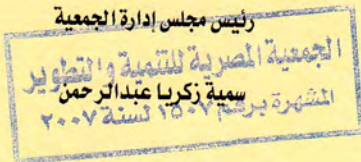 رئيس مجلس إدارة الجمعية
الجمعية المصرية للتنمية والتطوير
سمية زكريا عبدالرحمن
المشهرة برقم ١٥٠٧ لسنة ٢٠٠٧